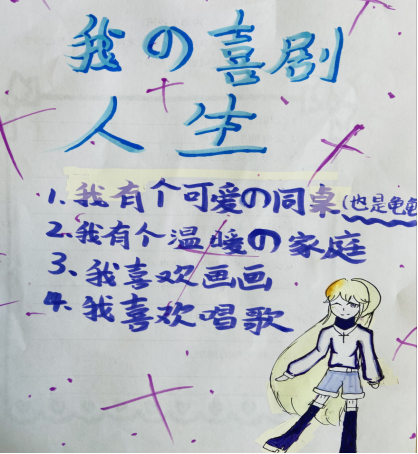 我の喜剧
人生
1. 我有个可爱の同桌(也是龟
2. 我有个温暖の家庭
3、我喜欢画画
4、我喜欢唱歌